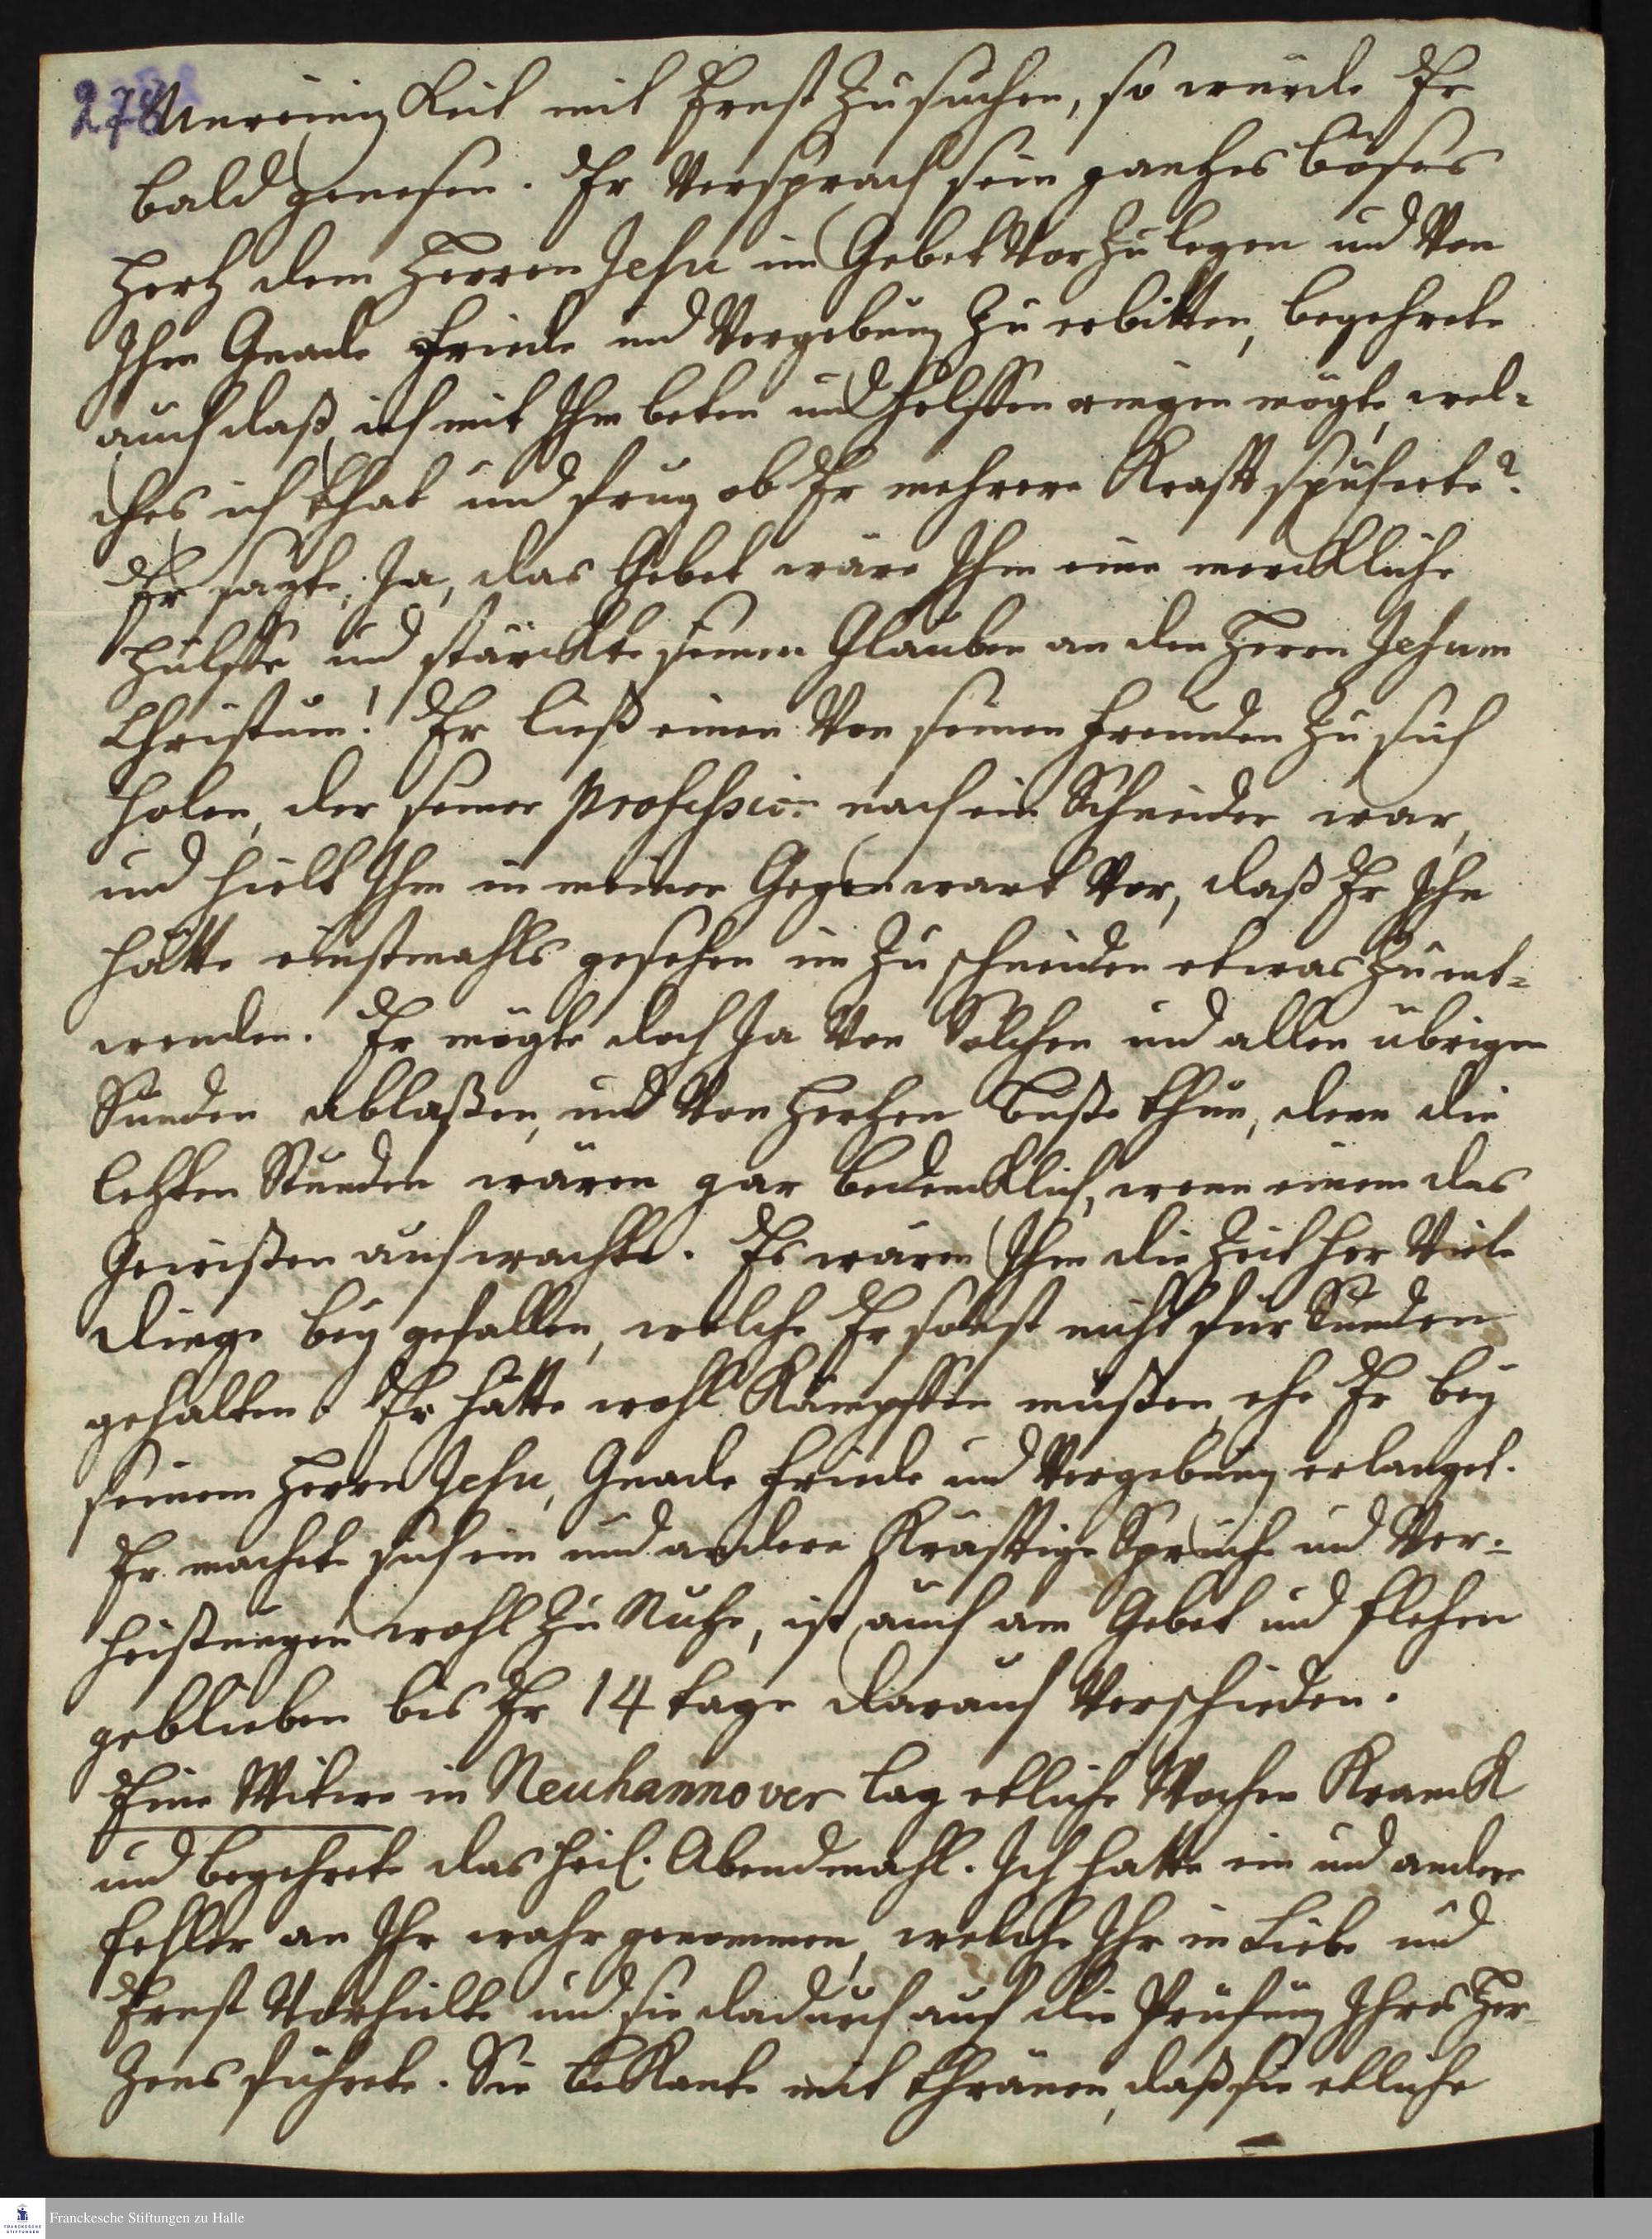 278
Unreinigkeit mit Ernst zu suchen, so würde Er
bald genesen. Er versprach sein gantzes böses
Hertz dem Herren Jesu im Gebet vor zu legen und von
Ihm Gnade Friede und Vergebung zu erbitten, begehrete
auch daß ich mit Ihm beten und helffen ringen mögte, wel-
ches ich that und frug ob Er mehrere Krafft spührete?
Er sagte, Ja, das Gebet wäre Ihm eine merckliche
Hülffe und stärckte seinen Glauben an den Herrn Jesum
Christum! Er ließ einen von seinen Freunden zu sich
holen, der seiner Profession nach ein Schneider war,
und hielt Ihm in meiner Gegenwart vor, daß Er Ihn
hätte einstmahls gesehen im zu schneiden etwas zu ent-
wenden. Er mögte doch Ja von Solchen und allen übrigen
Sünden ablaßen, und von Hertzen Buße thun, denn die
letzten Stunden wären gar bedencklich, wenn einem das
Gewißen aufwachte. Es wären Ihm die Zeit her Viele
dinge bey gefallen, welche Er sonst nicht für Sünden
gehalten. Er hätte wohl Kämpffen müßen, ehe Er bey
seinem Herrn Jesu, Gnade Friede und Vergebung erlanget.
Er machete sich ein und andere Kräfftige Sprüche und Ver-
heißungen wohl zu Nutze, ist auch am Gebet und flehen
geblieben bis Er 14 tage darauf verschieden.
Eine Witwe in Neuhannover lag etliche Wochen Kranck
und begehrete das heil. Abendmahl. Ich hatte ein und andere
Fehler an Ihr wahr genommen, welche Ihr in Liebe und
Ernst vorhielte und sie dadurch auf die Prüfung Ihres Her-
zens führete. Sie bekante mit thränen, daß sie etliche
Franckesche Stiftungen zu Halle